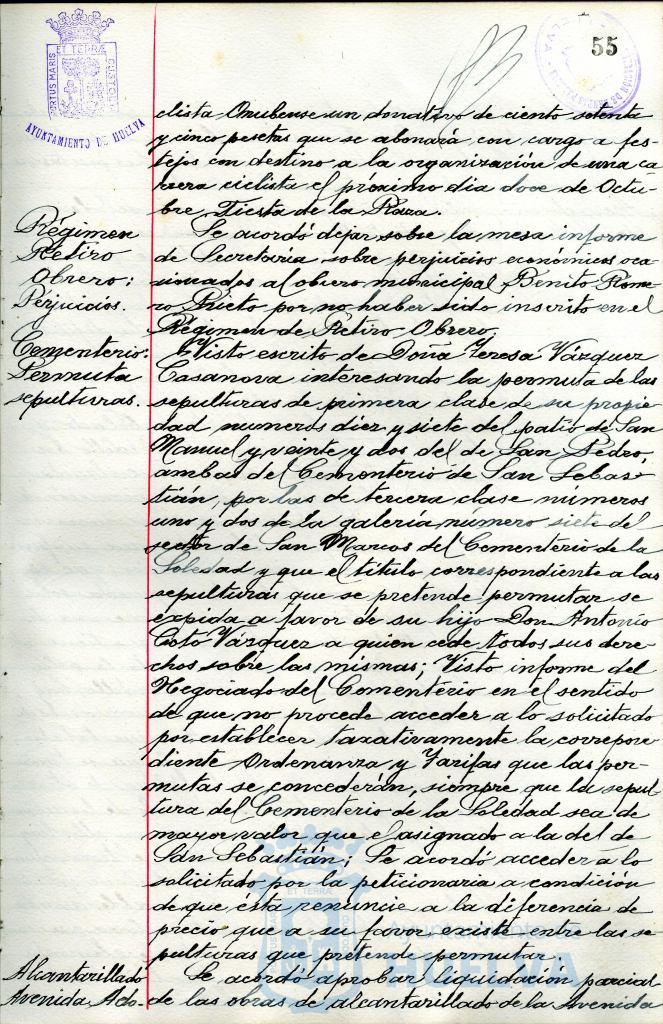 55
ET TERRÆ
PORTUS MARIS
CUSTODIA
AYUNTAMIENTO DE HUELVA
clista Onubense un donativo de ciento setenta
y cinco pesetas que se abonará con cargo a fes-
tejos con destino a la organización de una ca-
rrera ciclista el próximo dia doce de Octu-
bre Fiesta de la Raza.
Régimen
Retiro
Obrero:
Perjuicios.
Se acordó dejar sobre la mesa informe
de Secretaría sobre perjuicios económicos oca-
sionados al obrero municipal Benito Rome-
ro Prieto por no haber sido inscrito en el
Régimen de Retiro Obrero.
Cementerio:
Permuta
sepulturas.
Visto escrito de Doña Teresa Vázquez
Casanova interesando la permuta de las
sepulturas de primera clase de su propie-
dad numeros diez y siete del patio de San
Manuel y veinte y dos del de San Pedro,
ambas del Cementerio de San Sebas-
tián, por las de tercera clase numeros
uno y dos de la galería número siete del
sector de San Marcos del Cementerio de la
Soledad y que el título correspondiente a las
sepulturas que se pretende permutar se
expida a favor de su hijo Don Antonio
Cotó Vázquez a quien cede todos sus dere-
chos sobre las mismas; Visto informe del
Negociado del Cementerio en el sentido
de que no procede acceder a lo solicitado
por establecer taxativamente la correpon-
diente Ordenanza y Tarifas que las per-
mutas se concederán, siempre que la sepul-
tura del Cementerio de la Soledad sea de
mayor valor que el asignado a la del de
San Sebastián; Se acordó acceder a lo
solicitado por la peticionaria a condición
de que ésta renuncie a la diferencia de
precio que a su favor existe entre las se-
pulturas que pretende permutar.
Alcantarillado
Avenida Ado-
Se acordó aprobar liquidación parcial
de las obras de alcantarillado de la Avenida
Ayuntamiento
HUELVA